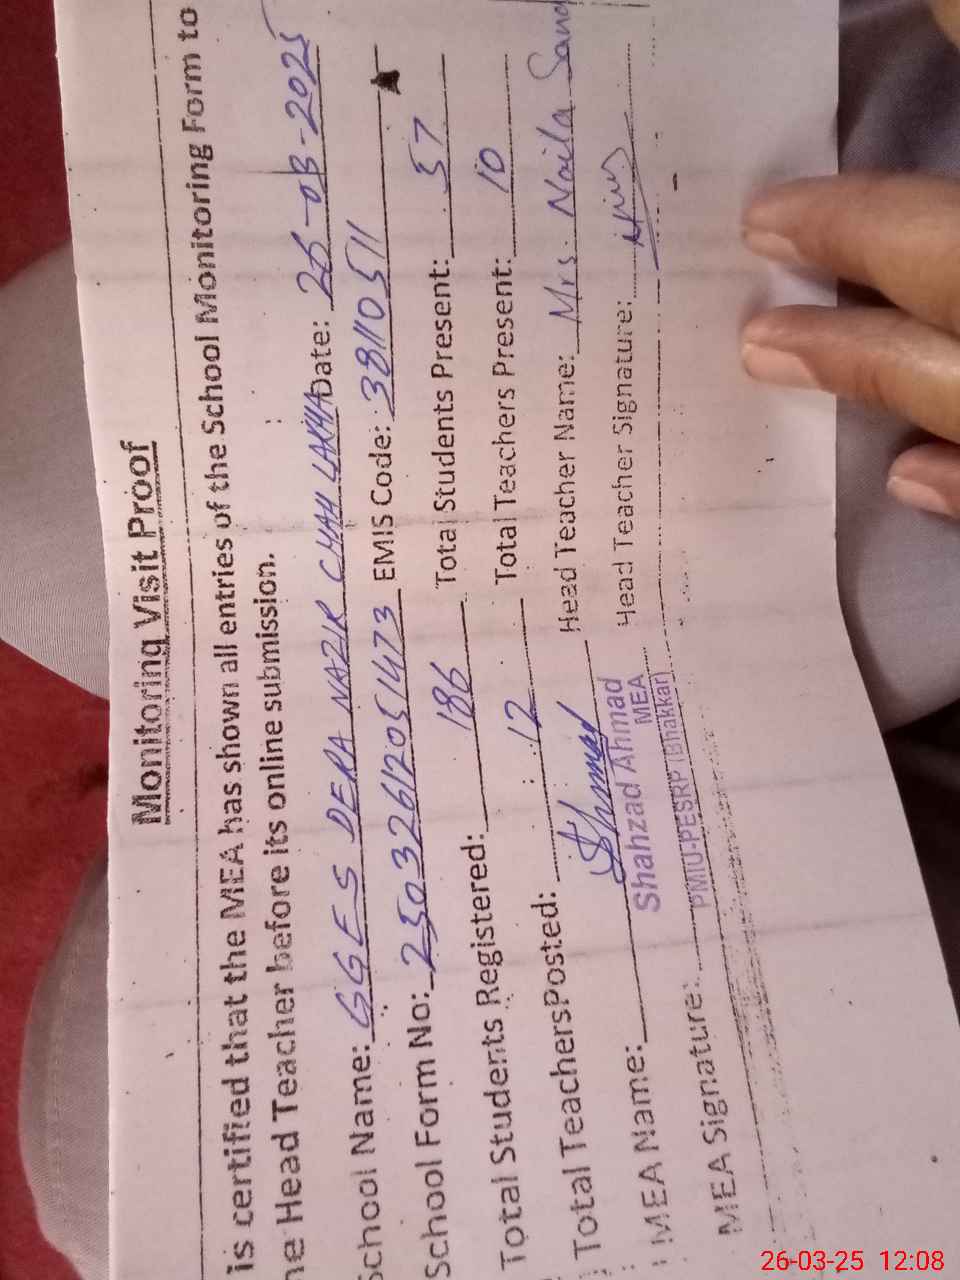 Monitoring Visit Proof
is certified that the MEA has shown all entries of the School Monitoring Form to
he Head Teacher before its online submission.
School Name: GGES DERA NAZIR CHAH LAKHA Date: 26-03-2025
School Form No: 25032612051473 EMIS Code: 38110511
Total Students Registered: 186 Total Students Present: 57
Total TeachersPosted: 12 Total Teachers Present: 10
MEA Name: Head Teacher Name: Mrs. Naila
Shahzad Ahmad
MEA
PMIU-PESRP (Bhakkar)
MEA Signature: Head Teacher Signature:
26-03-25 12:08